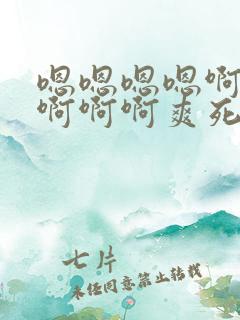 嗯嗯嗯嗯啊
啊啊啊爽死
七片
未经同意禁止转载